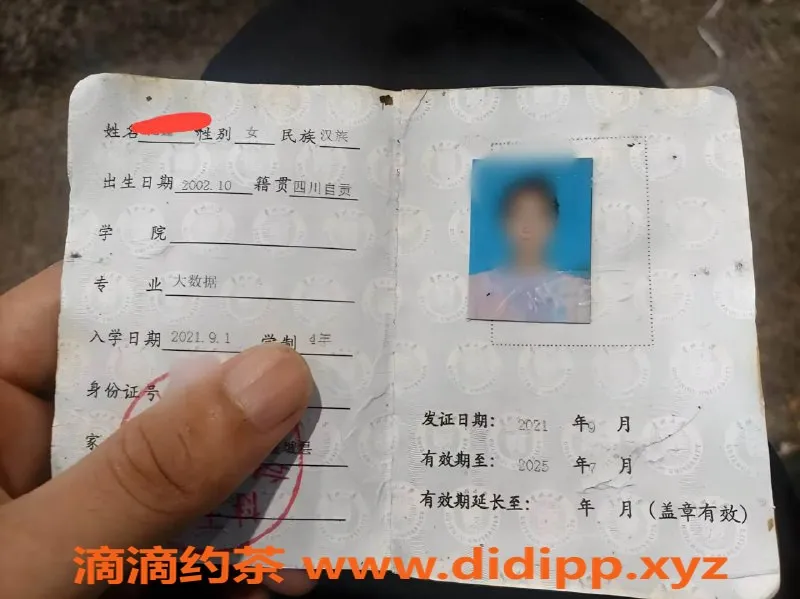 姓名 性别 女 民族 汉族
出生日期 2002.10 籍贯 四川自贡
学 院
专 业 大数据
入学日期 2021.9.1 学制 4年
身份证号
家
发证日期: 2021 年 9 月
有效期至: 2025 年 7 月
有效期延长至: 年 月 (盖章有效)
滴滴约茶 www.didipp.xyz